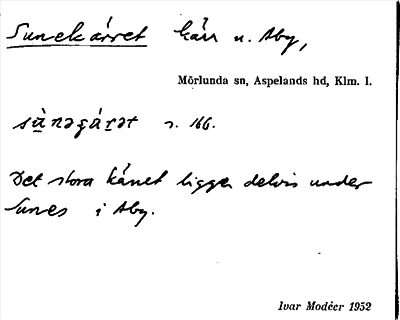 Sunekärret kärr u. Åby,
Mörlunda sn, Aspelands hd, Klm. l.
sùnəçárət s. 166.
Det stora kärret ligger delvis under
Sunes i Åby.
Ivar Modéer 1952